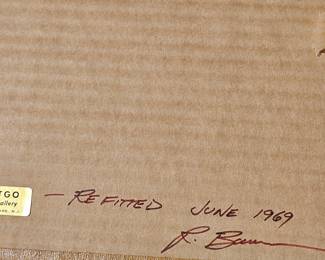 TGO
allery
— REFITTED JUNE 1969